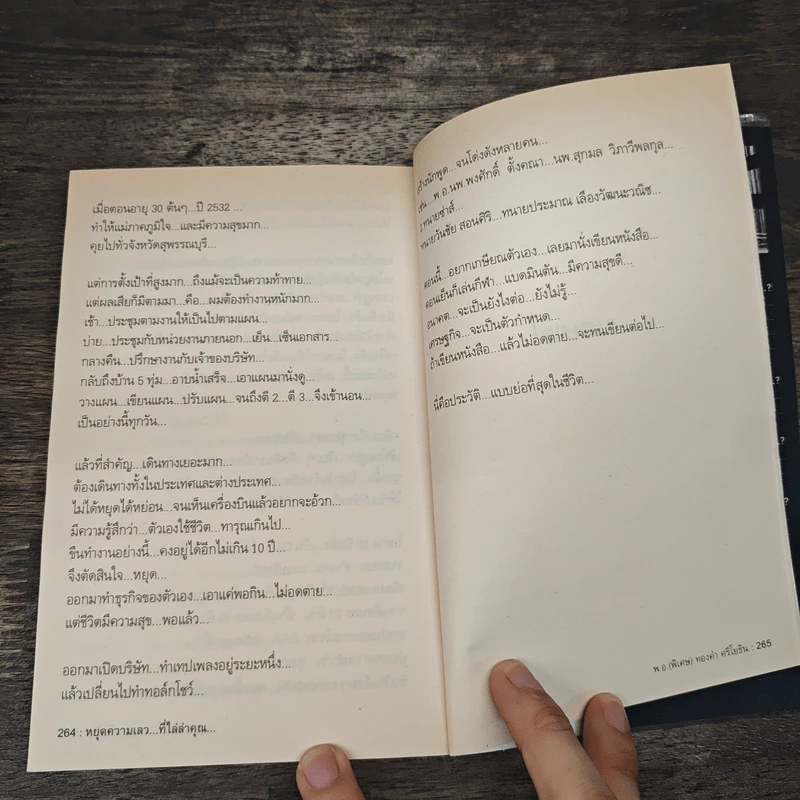 เมื่อตอนอายุ 30 ต้นๆ...ปี 2532 ...
ทำให้แม่ภาคภูมิใจ...และมีความสุขมาก...
คุยไปทั่วจังหวัดสุพรรณบุรี...
แต่การตั้งเป้าที่สูงมาก...ถึงแม้จะเป็นความท้าทาย...
แต่ผลเสียก็มีตามมา...คือ...ผมต้องทำงานหนักมาก...
เช้า...ประชุมตามงานให้เป็นไปตามแผน...
บ่าย...ประชุมกับหน่วยงานภายนอก...เย็น...เซ็นเอกสาร...
กลางคืน...ปรึกษางานกับเจ้าของบริษัท...
กลับถึงบ้าน 5 ทุ่ม...อาบน้ำเสร็จ...เอาแผนมานั่งดู...
วางแผน...เขียนแผน...ปรับแผน...จนถึงตี 2...ตี 3...จึงเข้านอน...
เป็นอย่างนี้ทุกวัน...
แล้วที่สำคัญ...เดินทางเยอะมาก...
ต้องเดินทางทั้งในประเทศและต่างประเทศ...
ไม่ได้หยุดได้หย่อน...จนเห็นเครื่องบินแล้วอยากจะอ้วก...
มีความรู้สึกว่า...ตัวเองใช้ชีวิต...ทารุณเกินไป...
ขืนทำงานอย่างนี้...คงอยู่ได้อีกไม่เกิน 10 ปี...
จึงตัดสินใจ...หยุด...
ออกมาทำธุรกิจของตัวเอง...เอาแค่พอกิน...ไม่อดตาย...
แต่ชีวิตมีความสุข...พอแล้ว...
ออกมาเปิดบริษัท...ทำเทปเพลงอยู่ระยะหนึ่ง...
แล้วเปลี่ยนไปทำทอล์กโชว์...
264 : หยุดความเลว...ที่ไล่ล่าคุณ...
สร้างนักพูด...จนโด่งดังหลายคน...
เช่น...พ.อ.นพ.พงศักดิ์ ตั้งคณา...นพ.สุกมล วิภาวีพลกุล...
2 ทนายซ่าส์...
ทนายวันชัย สอนศิริ...ทนายประมาณ เลืองวัฒนะวณิช...
ตอนนี้...อยากเกษียณตัวเอง...เลยมานั่งเขียนหนังสือ...
ตอนเย็นก็เล่นกีฬา...แบดมินตัน...มีความสุขดี...
อนาคต...จะเป็นยังไงต่อ...ยังไม่รู้...
เศรษฐกิจ...จะเป็นตัวกำหนด...
ถ้าเขียนหนังสือ...แล้วไม่อดตาย...จะทนเขียนต่อไป...
นี่คือประวัติ...แบบย่อที่สุดในชีวิต...
พ.อ.(พิเศษ) ทองคำ ศรีโยธิน : 265